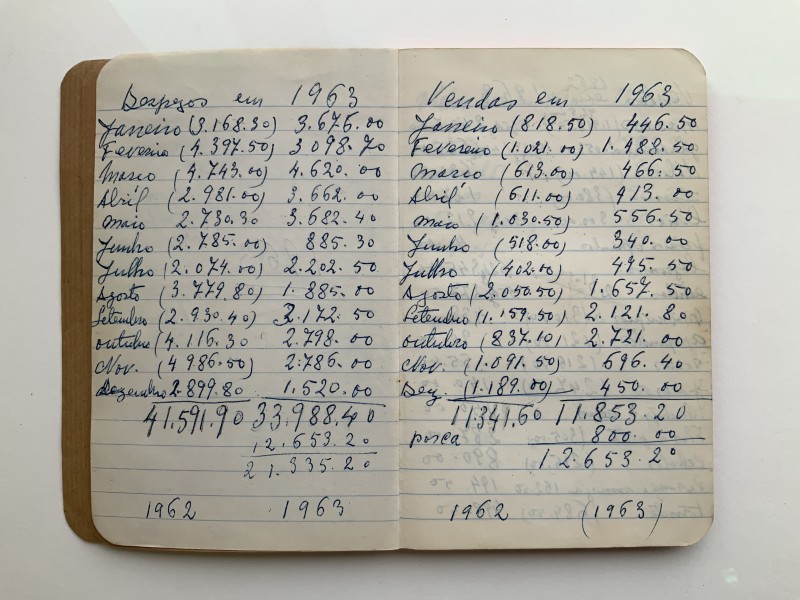 Despezas em 1963
Janeiro (3.168.30) 3.675.00
Fevereiro (4.397.50) 3.098.70
Março (4.743.00) 4.620.00
Abril (2.981.00) 3.662.00
Maio 2.730.30 3.682.40
Junho (2.785.00) 885.30
Julho (2.074.00) 2.202.50
Agosto (3.779.80) 1.885.00
Setembro (2.930.40) 2.172.50
outubro (4.116.30 2.798.00
Nov. (4986.50) 2.786.00
Dezembro 2.899.80 1.520.00
41.591.90 33.988.40
12.653.20
21.335.20
1962 1963
Vendas em 1963
Janeiro (818.50) 446.50
Fevereiro (1.021.00) 1.488.50
Março (613.00) 466.50
Abril (611.00) 413.00
Maio (1.030.50) 556.50
Junho (518.00) 340.00
Julho (402.00) 495.50
Agosto (2.050.50) 1.657.50
Setembro (1.159.50) 2.121.80
outubro (837.10) 2.721.00
Nov. (1.091.50) 696.40
Dez. (1.189.00) 450.00
11.341.60 11.853.20
porca 800.00
12.653.20
1962 (1963)